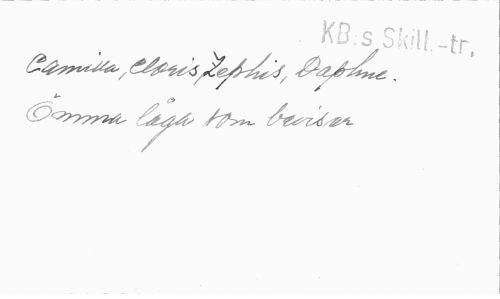 KB:s Skill.-tr.
Camilla, Cloris, Zephis, Daphne.
Ömma låga som bevisar